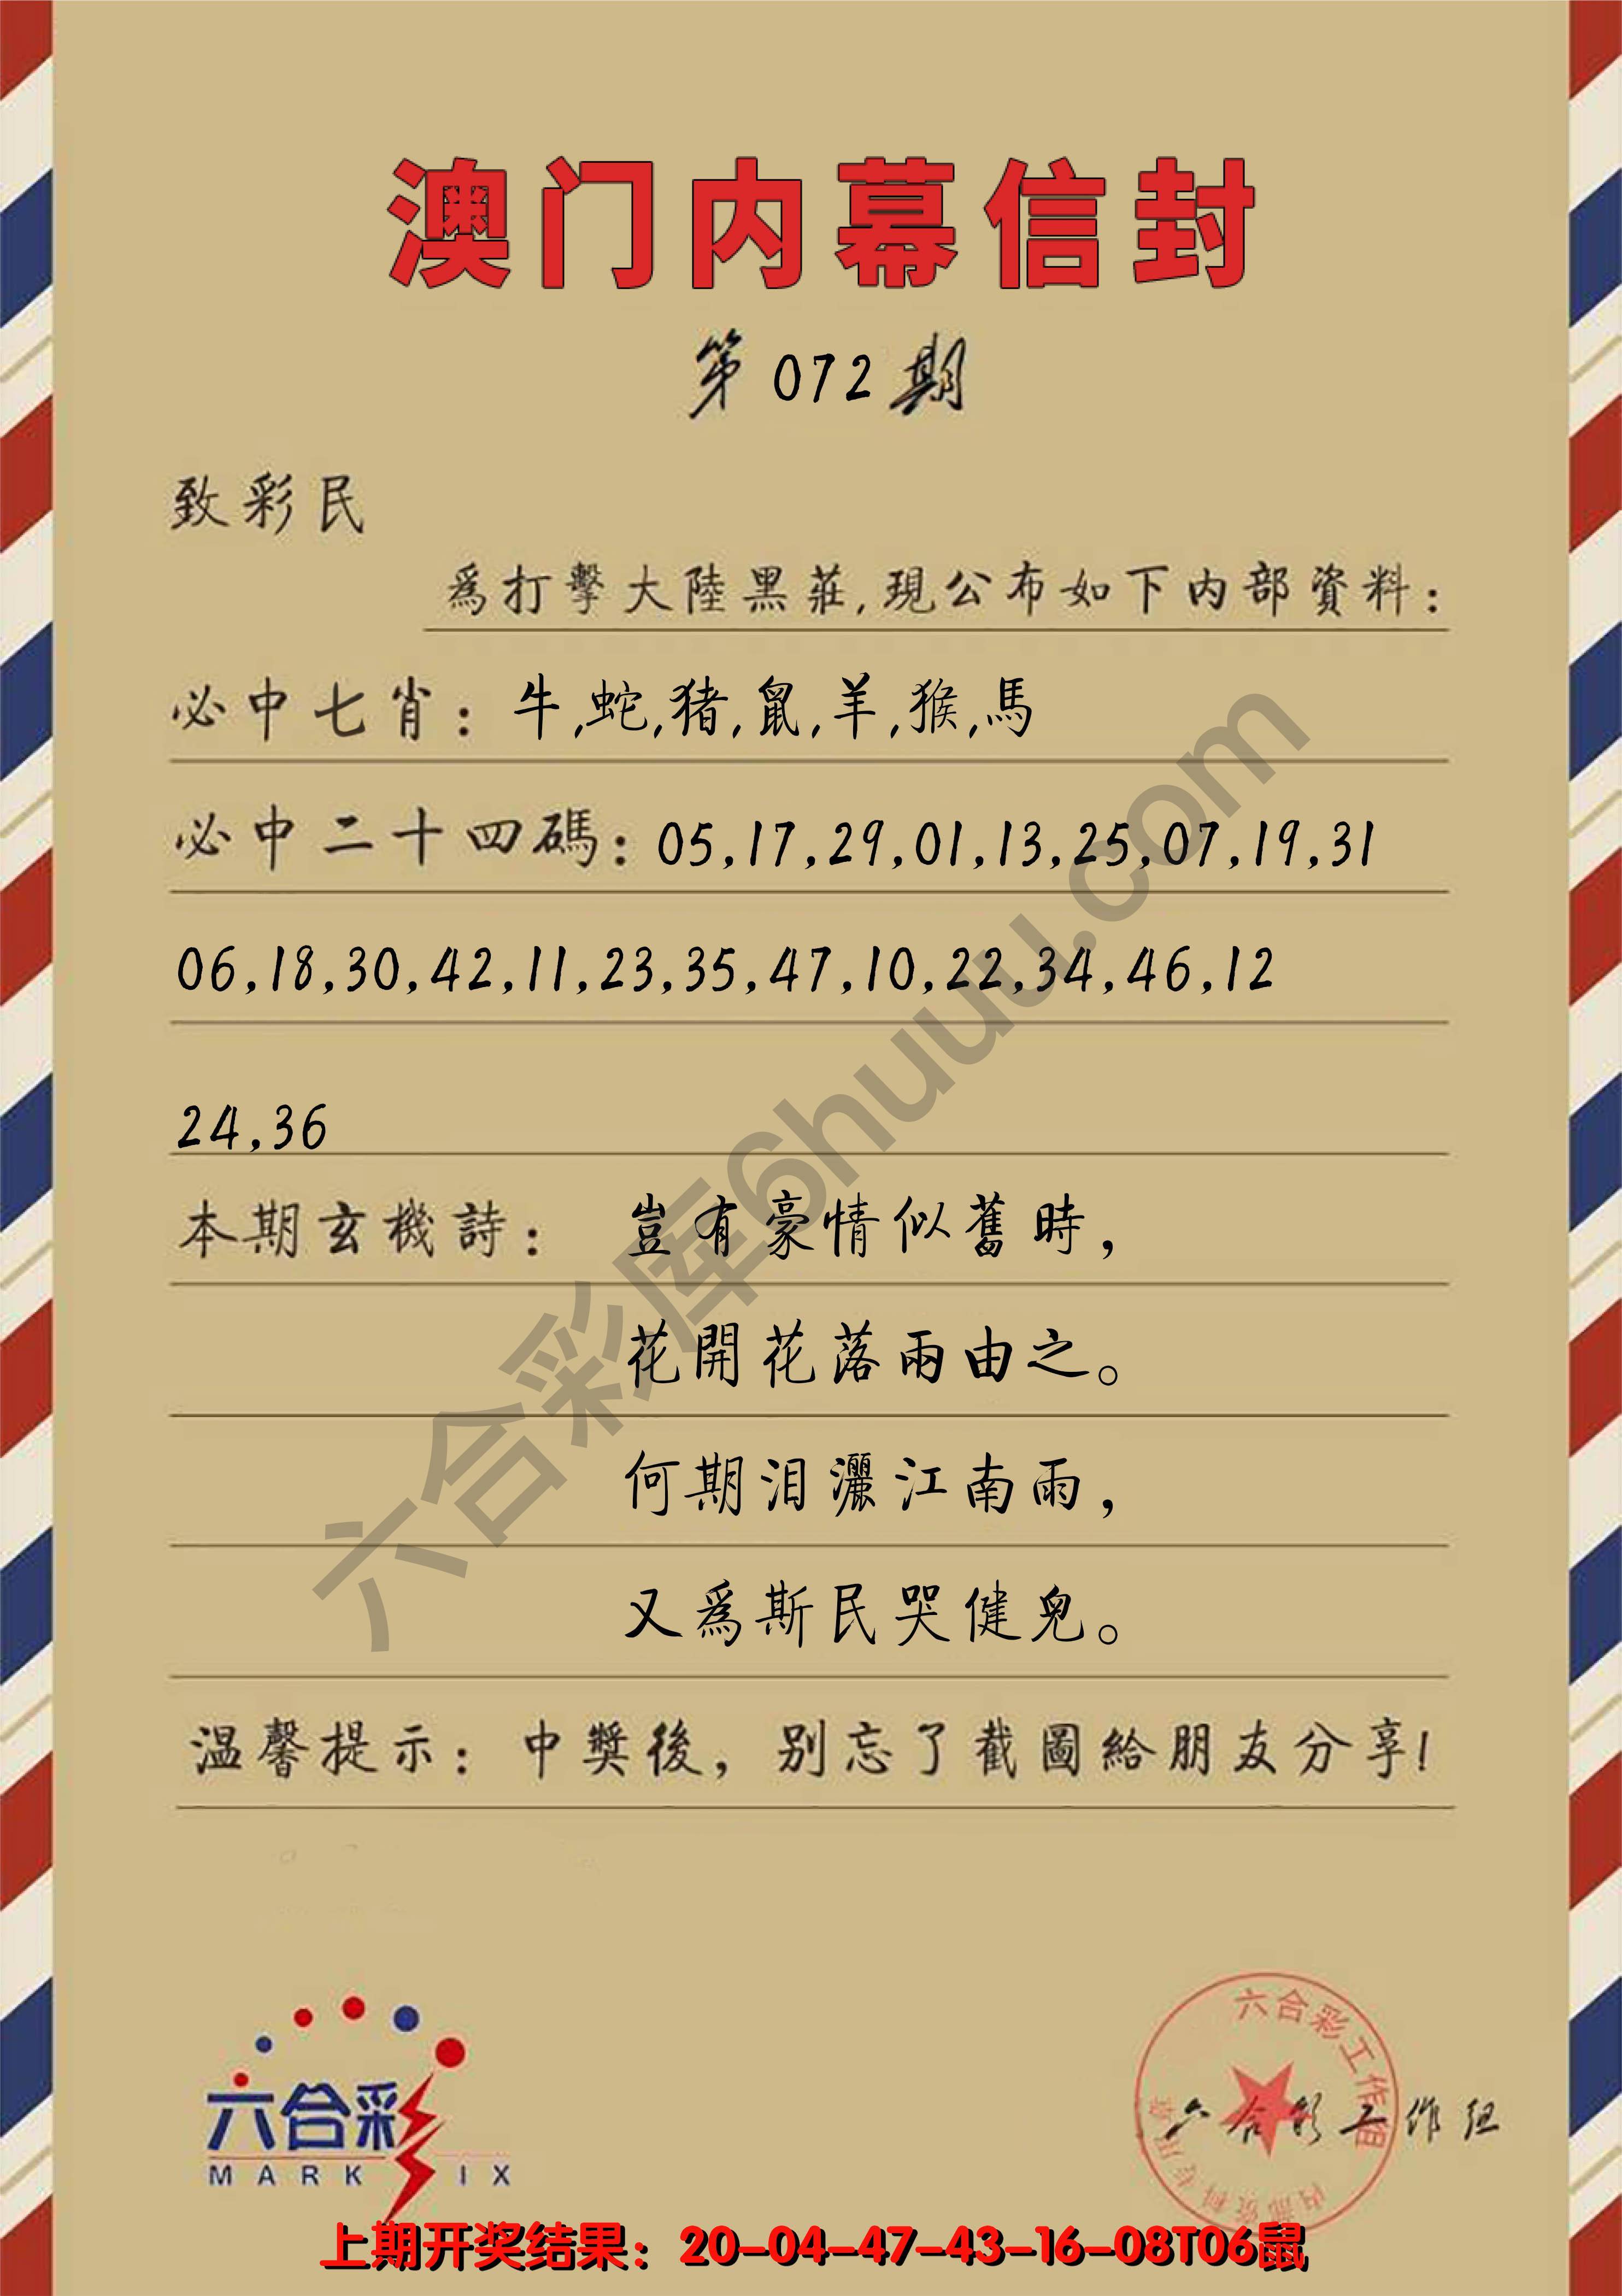 澳门内幕信封
第072期
致彩民
爲打擊大陸黑莊,現公布如下内部資料:
必中七肖: 牛,蛇,猪,鼠,羊,猴,馬
必中二十四碼: 05,17,29,01,13,25,07,19,31
06,18,30,42,11,23,35,47,10,22,34,46,12
24,36
本期玄機詩: 豈有豪情似舊時,
花開花落兩由之。
何期泪灑江南雨,
又爲斯民哭健兒。
温馨提示: 中獎後, 别忘了截圖給朋友分享!
六合彩库6huuu.com
六合彩工作组
内部资料专用章
六合彩工作组
六合彩
MARK IX
上期开奖结果: 20-04-47-43-16-08T06鼠